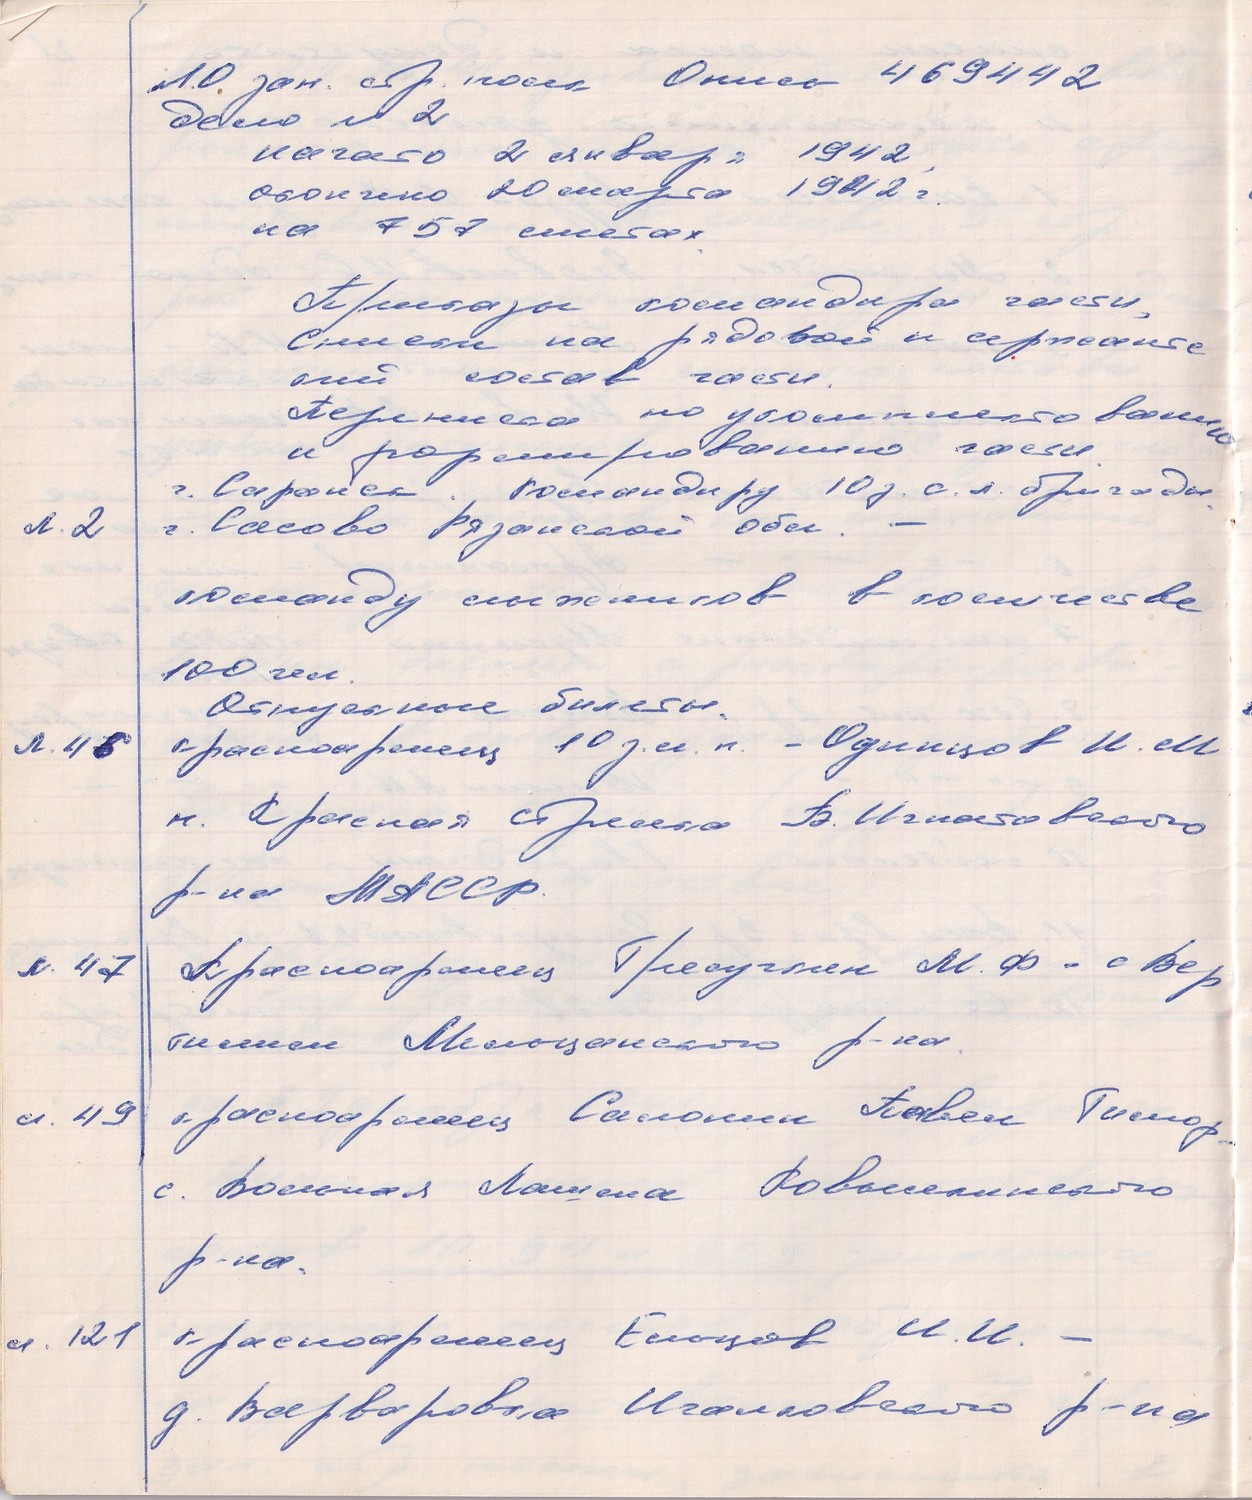 10 зап. стр. полк Опись 469442
дело № 2
начато 2 января 1942
окончено 20 марта 1942 г.
на 757 листах.
Приказы командира части,
Списки на рядовой и сержантс
кий состав части.
Переписка по укомплектованию
и формированию части.
г. Саранск. командиру 10 з. с. л. бригады.
л. 2 г. Сасово Рязанской обл. —
команду лыжников в количестве
100 чел.
Отпускные билеты.
л. 46 красноармеец 10 з.л.п. - Одинцов И. М
п. Красная стрелка Б. Игнатовского
р-на МАССР.
л. 47 Красноармеец М. Ф - с Вер
Мельцанского р-на.
л. 49 красноармеец Салонин Павел Тимоф.
с. Вольная Лашма Ковылкинского
р-на.
л. 121 красноармеец Ельцов И. И. —
д. Варваровка Ичалковского р-на